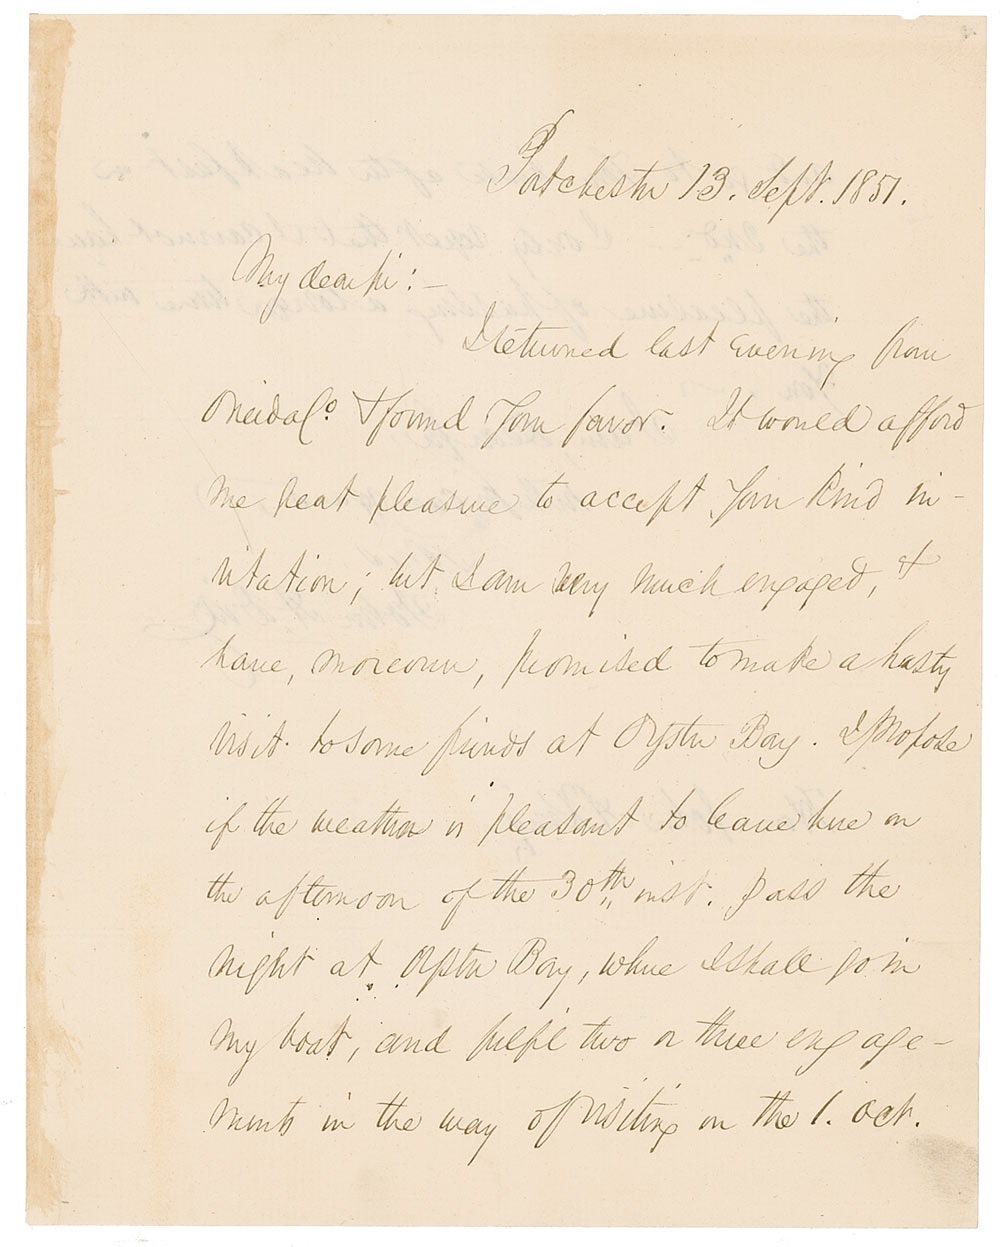 Portchester 13. Sept. 1851.
My dear sir:—
I returned last evening from
Oneida Co. & found your favor. It would afford
me great pleasure to accept your kind in-
vitation; but I am very much engaged, &
have, moreover, promised to make a hasty
visit to some friends at Oyster Bay. I propose
if the weather is pleasant to leave here on
the afternoon of the 30th inst. pass the
night at Oyster Bay, where I shall go in
my boat, and fulfil two or three engage-
ments in the way of visiting on the 1. Oct.